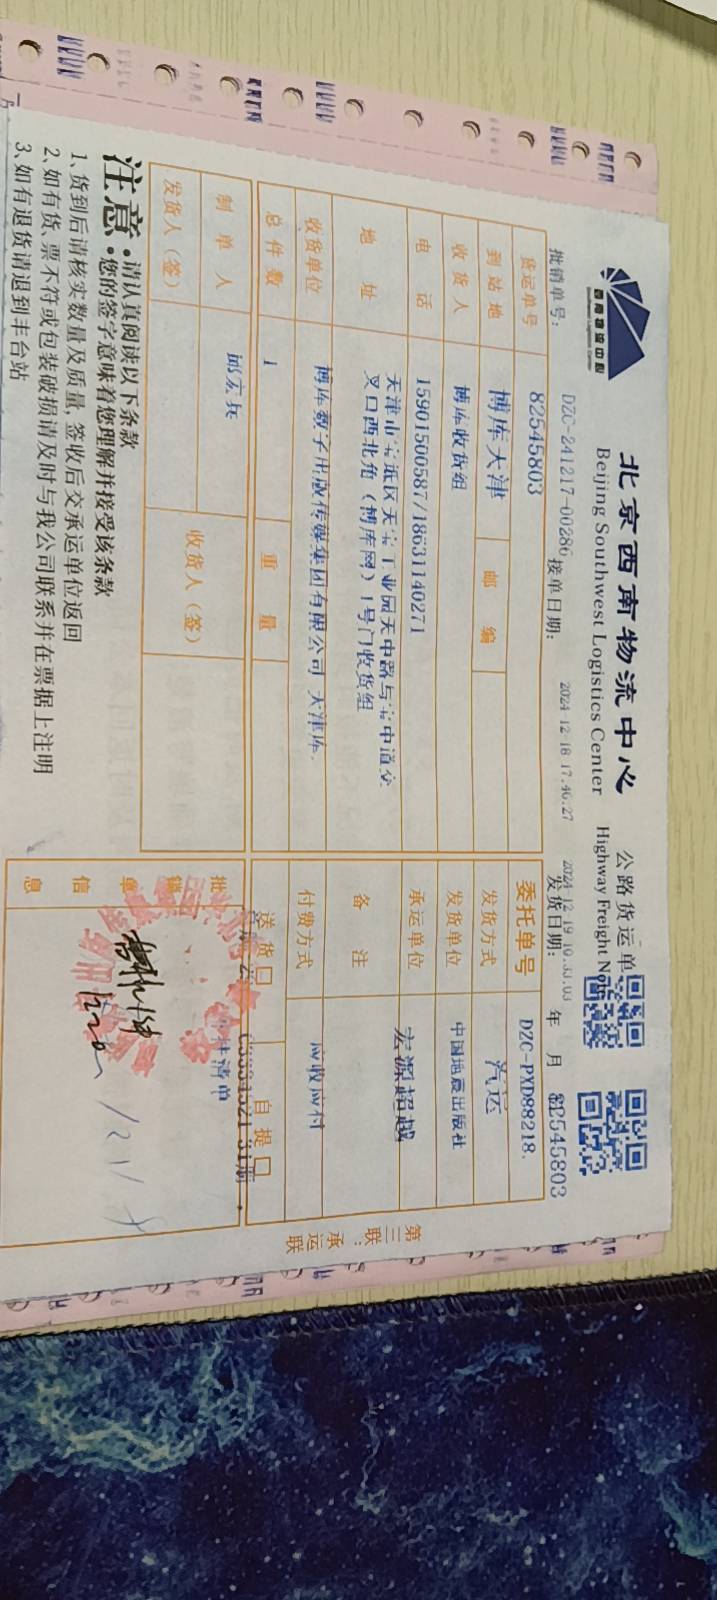 西南物流中心
Southwest Logistics Center
北京西南物流中心 公路货运单
Beijing Southwest Logistics Center Highway Freight Note
2024-12-18 17.40.27
批销单号： DZC-241217-00286 接单日期： 发货日期： 年 月 日
82545803
货运单号 82545803 委托单号 DZC-PXD88218.
到站地 博库天津 邮编 发货方式 汽运
收货人 博库收货组 发货单位 中国地震出版社
电话 15901500587/18631140271 承运单位 宏源超越
地址 天津市宝坻区天宝工业园天中路与宝中道交
叉口西北角（博库网）1号门收货组
备注
收货单位 博库数字出版传媒集团有限公司 天津库.
付费方式 应收应付
总件数 1 重量 送货□ 自提□
制单人 邱宏兵 收货人（签）
发货人（签）
批销单信息
清单
注意：请认真阅读以下条款
您的签字意味着您理解并接受该条款
1、货到后请核实数量及质量，签收后交承运单位返回
2、如有货、票不符或包装破损请及时与我公司联系并在票据上注明
3、如有退货请退到丰台站
第三联：承运联